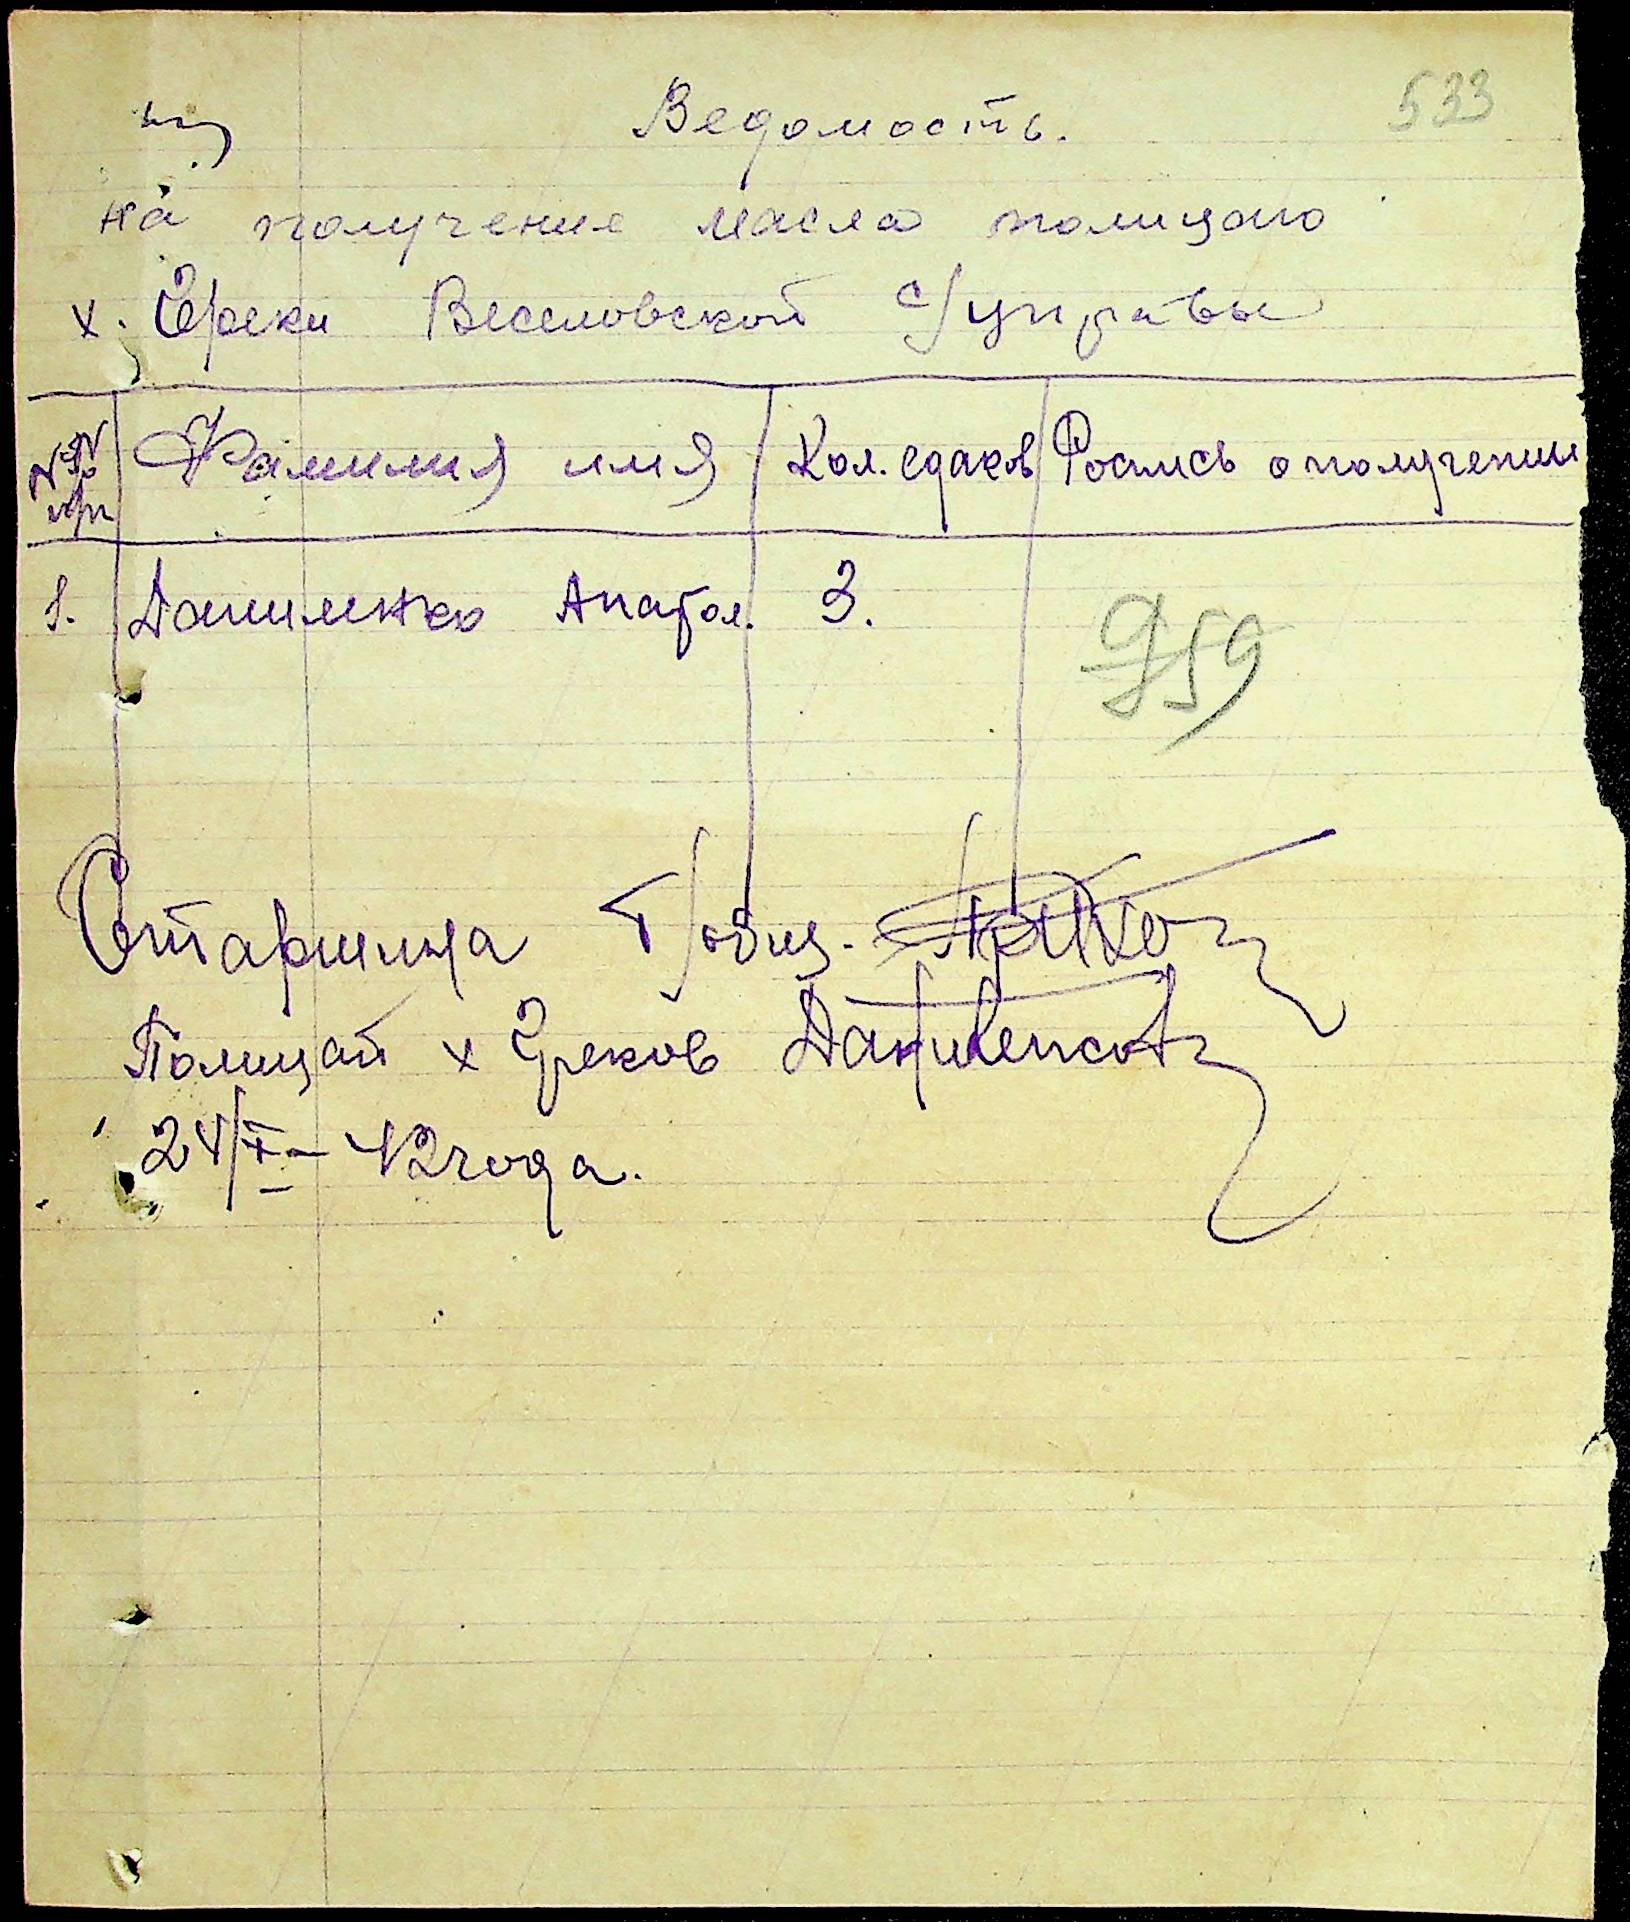 533
Ведомость.
на получение масла полицаю
х. Греки Веселовской с/управы
№№ п/п Фамилия имя Кол. едаков Роспись о получении
1. Даниленко Анатол. 3.
959
Старшина
Полицай х Греков Даниленко
24/X - 42 года.